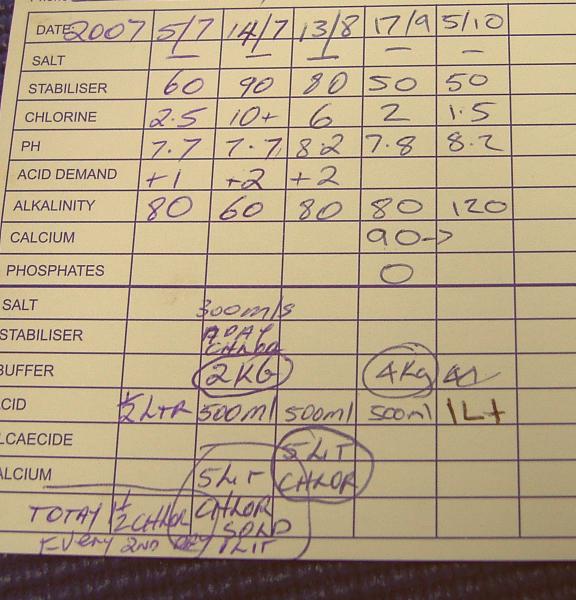 DATE 2007 5/7 14/7 13/8 17/9 5/10
SALT — — — — —
STABILISER 60 90 80 50 50
CHLORINE 2.5 10+ 6 2 1.5
PH 7.7 7.7 8.2 7.8 8.2
ACID DEMAND +1 +2 +2
ALKALINITY 80 60 80 80 120
CALCIUM 90->
PHOSPHATES 0
SALT 300mls
STABILISER A DAY
CHLOR
BUFFER 2KG 4Kg
CID ½ LTR 500ml 500ml 500ml 1Lt
LCAECIDE 5 LIT
ALCIUM 5 LIT CHLOR
TOTAL ½ CHLOR CHLOR
EVERY 2ND DAY LIT